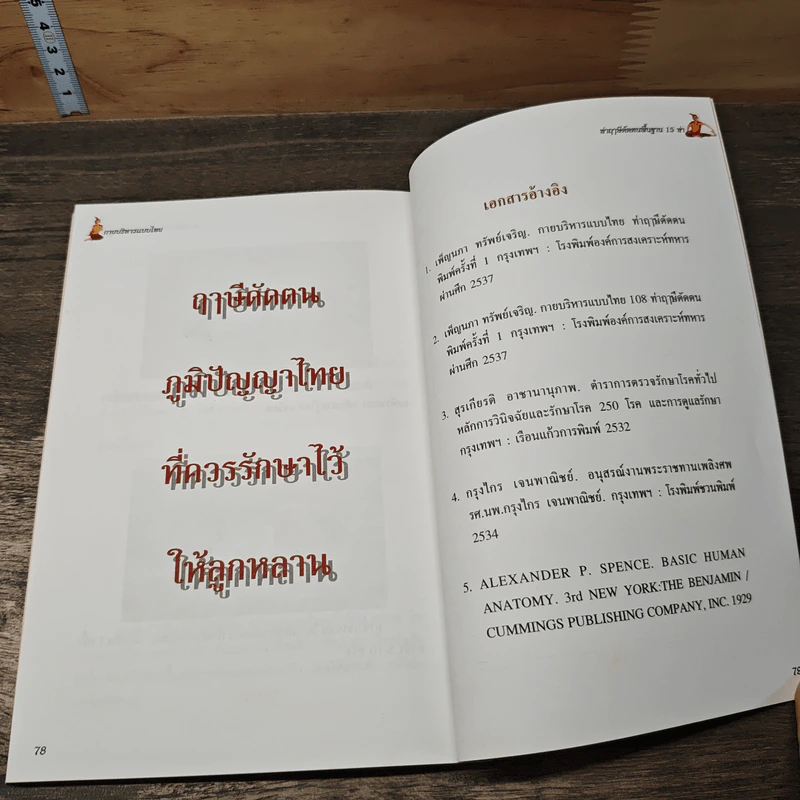 กายบริหารแบบไทย
ฤาษีดัดตน
ภูมิปัญญาไทย
ที่ควรรักษาไว้
ให้ลูกหลาน
78
ท่าฤๅษีดัดตนพื้นฐาน 15 ท่า
เอกสารอ้างอิง
1. เพ็ญนภา ทรัพย์เจริญ. กายบริหารแบบไทย ท่าฤๅษีดัดตน
พิมพ์ครั้งที่ 1 กรุงเทพฯ : โรงพิมพ์องค์การสงเคราะห์ทหาร
ผ่านศึก 2537
2. เพ็ญนภา ทรัพย์เจริญ. กายบริหารแบบไทย 108 ท่าฤๅษีดัดตน
พิมพ์ครั้งที่ 1 กรุงเทพฯ : โรงพิมพ์องค์การสงเคราะห์ทหาร
ผ่านศึก 2537
3. สุรเกียรติ อาชานานุภาพ. ตำราการตรวจรักษาโรคทั่วไป
หลักการวินิจฉัยและรักษาโรค 250 โรค และการดูแลรักษา
กรุงเทพฯ : เรือนแก้วการพิมพ์ 2532
4. กรุงไกร เจนพาณิชย์. อนุสรณ์งานพระราชทานเพลิงศพ
รศ.นพ.กรุงไกร เจนพาณิชย์. กรุงเทพฯ : โรงพิมพ์ชวนพิมพ์
2534
5. ALEXANDER P. SPENCE. BASIC HUMAN
ANATOMY. 3rd NEW YORK:THE BENJAMIN /
CUMMINGS PUBLISHING COMPANY, INC. 1929
79
5
4
3
2
1